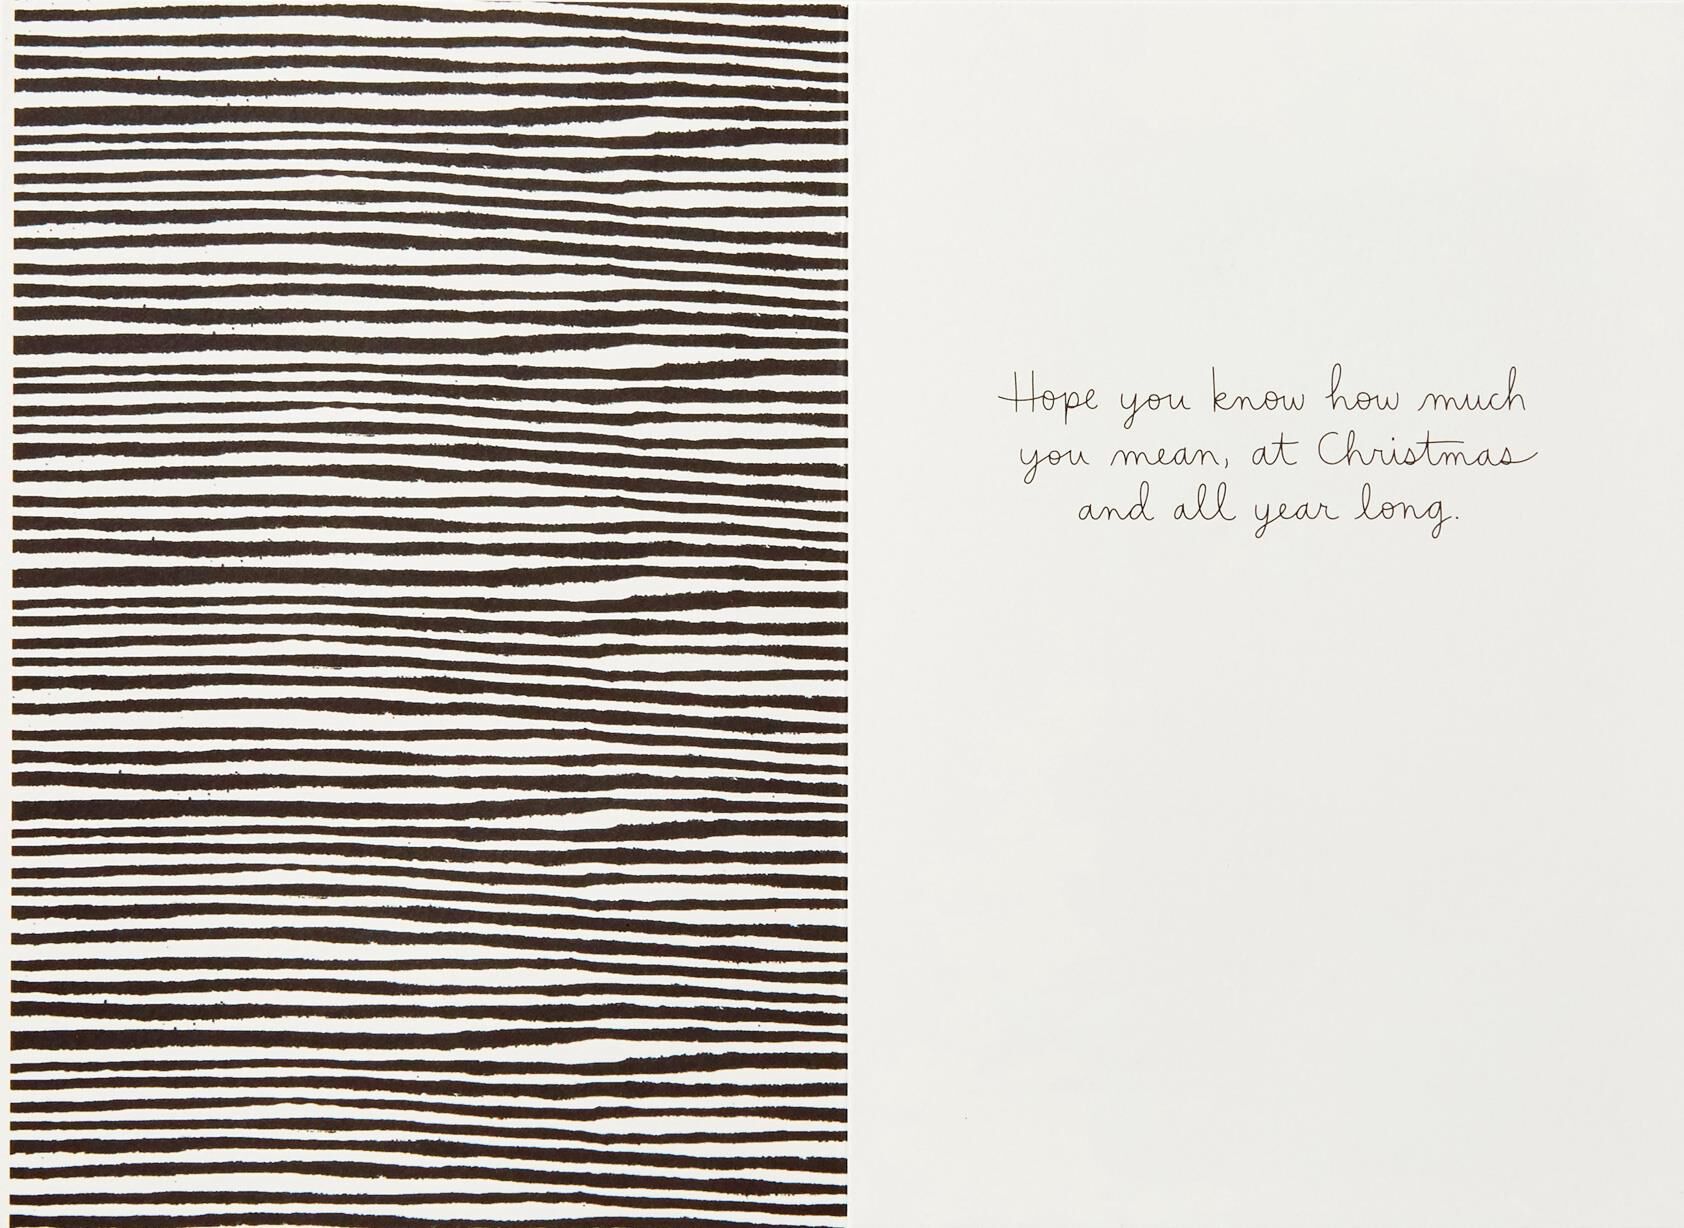 Hope you know how much
you mean, at Christmas
and all year long.